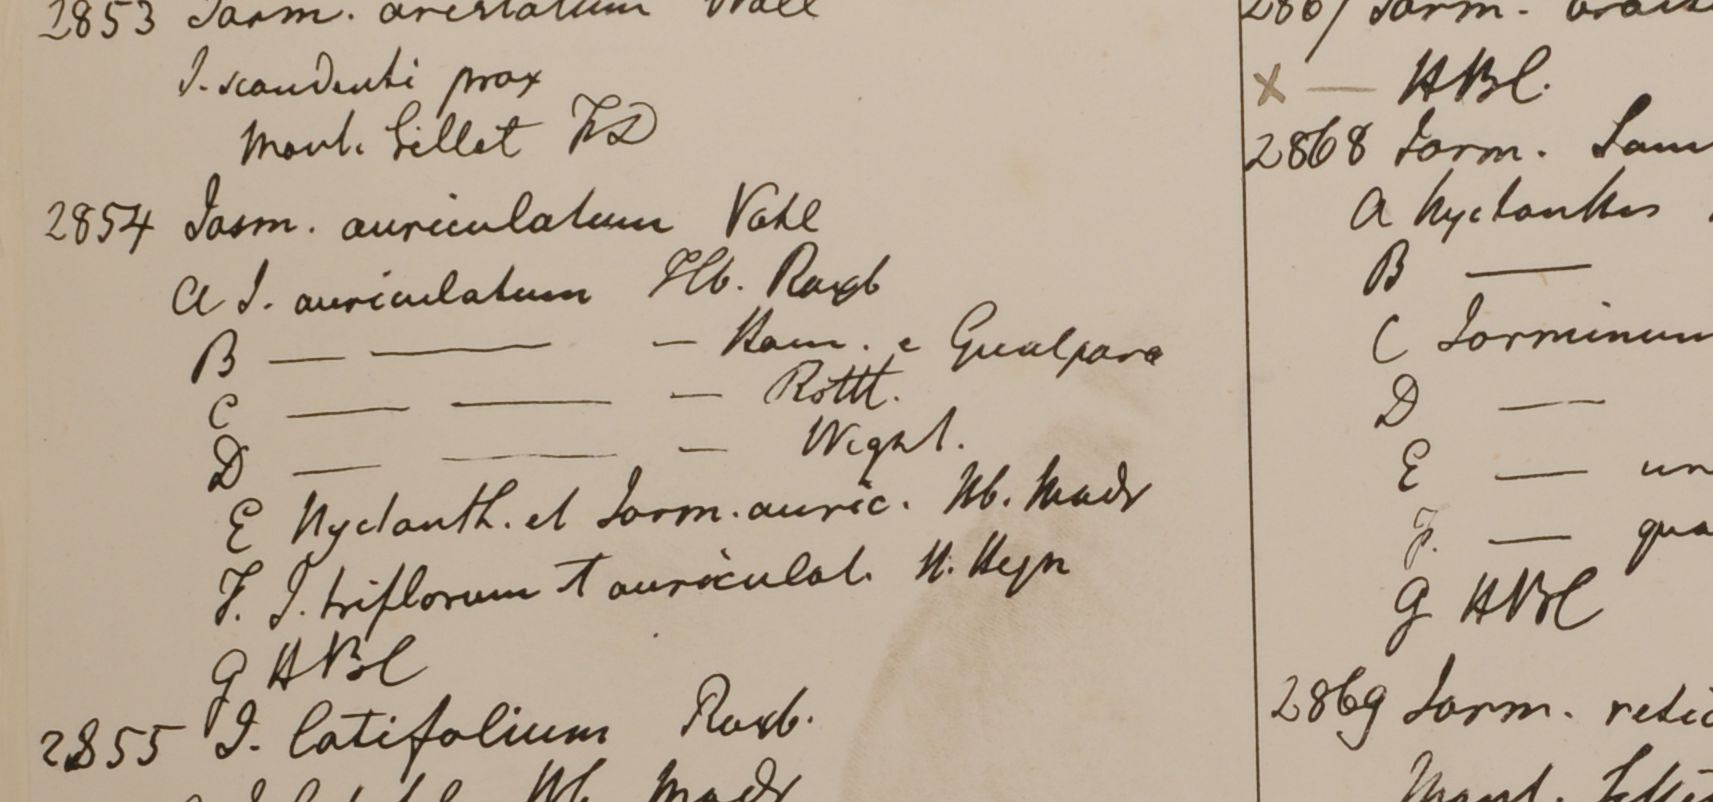 2853 Jasm. aristatum Wall
J. scandenti prox
Mont. Sillet FD
2854 Jasm. auriculatum Vahl
A J. auriculatum Hb. Roxb
B — — — Ham. e Gualpara
C — — — Rottl.
D — — — Wight.
E Nyctanth. et Jasm. auric. Hb. Madr
F. J. triflorum + auriculat. H. Heyn
G HBC
2855 J. latifolium Roxb.
Hb. Madr
2867 Jasm.
X — HBC.
2868 Jasm.
A Nyctanthes
B —
C Jasminum
D —
E — un
F. — qua
G HBC
2869 Jasm. retic
Mont. Sillet